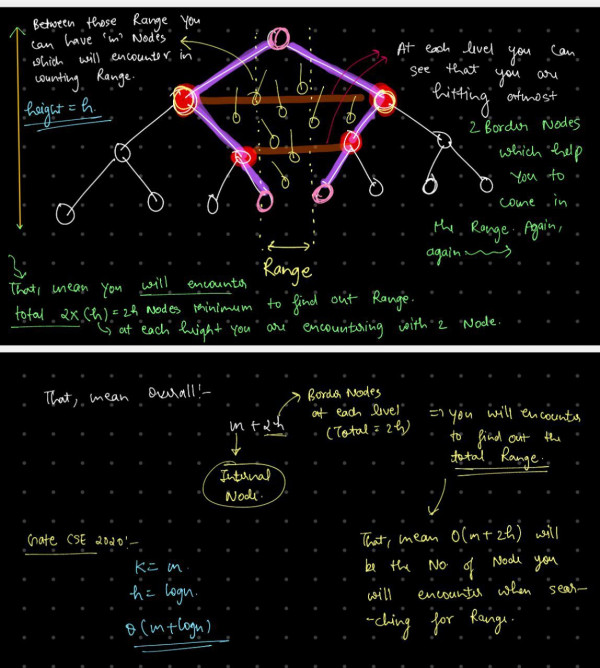 Between those Range You
can have 'm' Nodes
which will encounter in
counting Range.
height = h.
At each level you can
see that you are
hitting atmost
2 Border Nodes
which help
You to
come in
the Range. Again,
again
Range
That, mean you will encounter
total 2x(h) = 2h Nodes minimum to find out Range.
at each height you are encountering with 2 Node.
That, mean Overall:-
m + 2h
Border Nodes
at each level
(Total = 2h)
Internal
Node.
=> you will encounter
to find out the
total Range.
That, mean O(m+2h) will
be the No. of Node you
will encounter when sear-
-ching for Range.
Gate CSE 2020:-
K = m.
h = logn.
θ(m+logn)